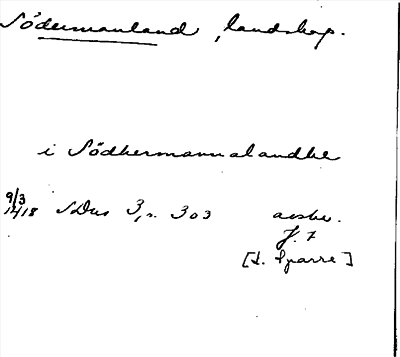 Södermanland, landskap.
i Södhermannalandhe
9/3 1418 SDns 3, s. 303 avskr.
f. 7
[L. Sparre]